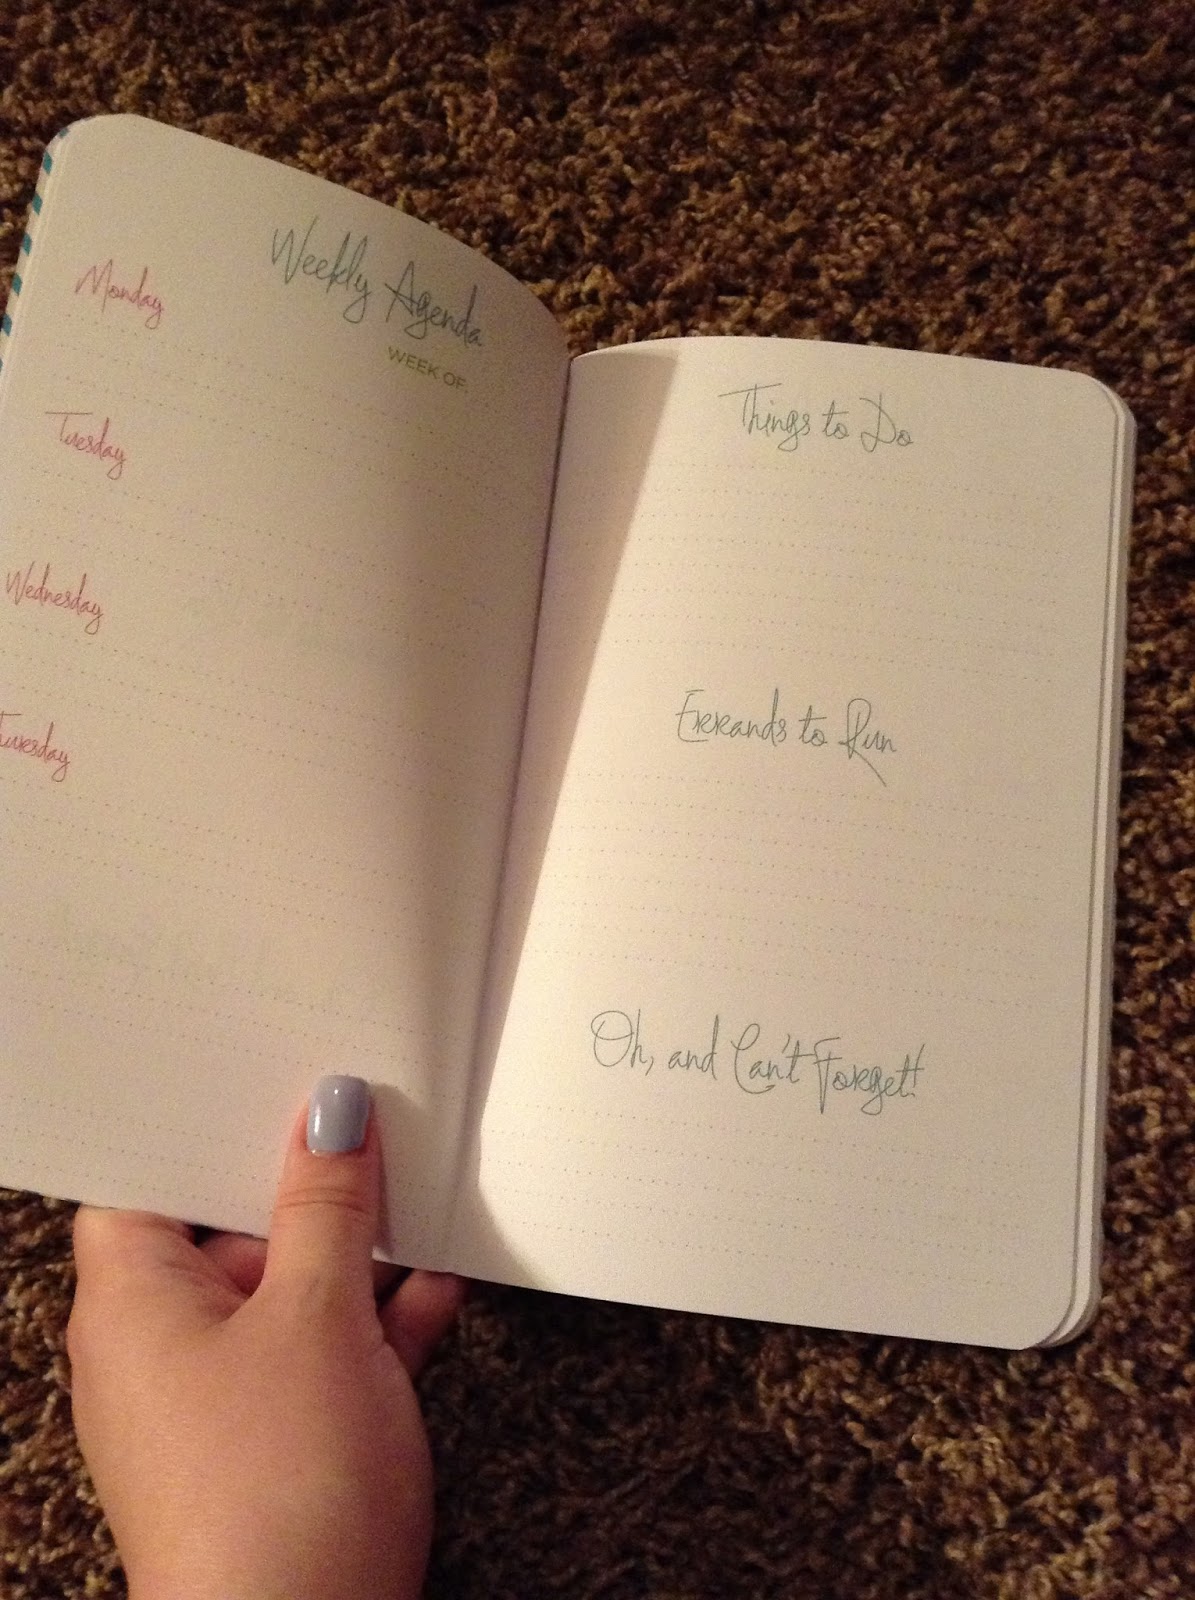 Weekly Agenda
WEEK OF:
Monday
Tuesday
Wednesday
Things to Do
Errands to Run
Oh, and Can't Forget!